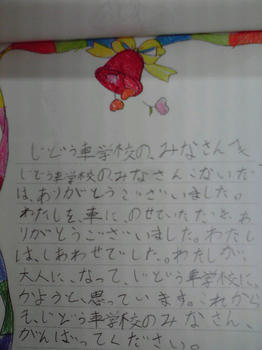 じどう車学校の、みなさんへ
じどう車学校のみなさん、こないだ
は、ありがとうございました。
わたしを、車に、のせていただき、あ
りがとうございました。わたし
は、しあわせでした。わたしが、
大人に、なって、じどう車学校に、
かようと、思っています。これから
も、じどう車学校のみなさん、
がんばってください。